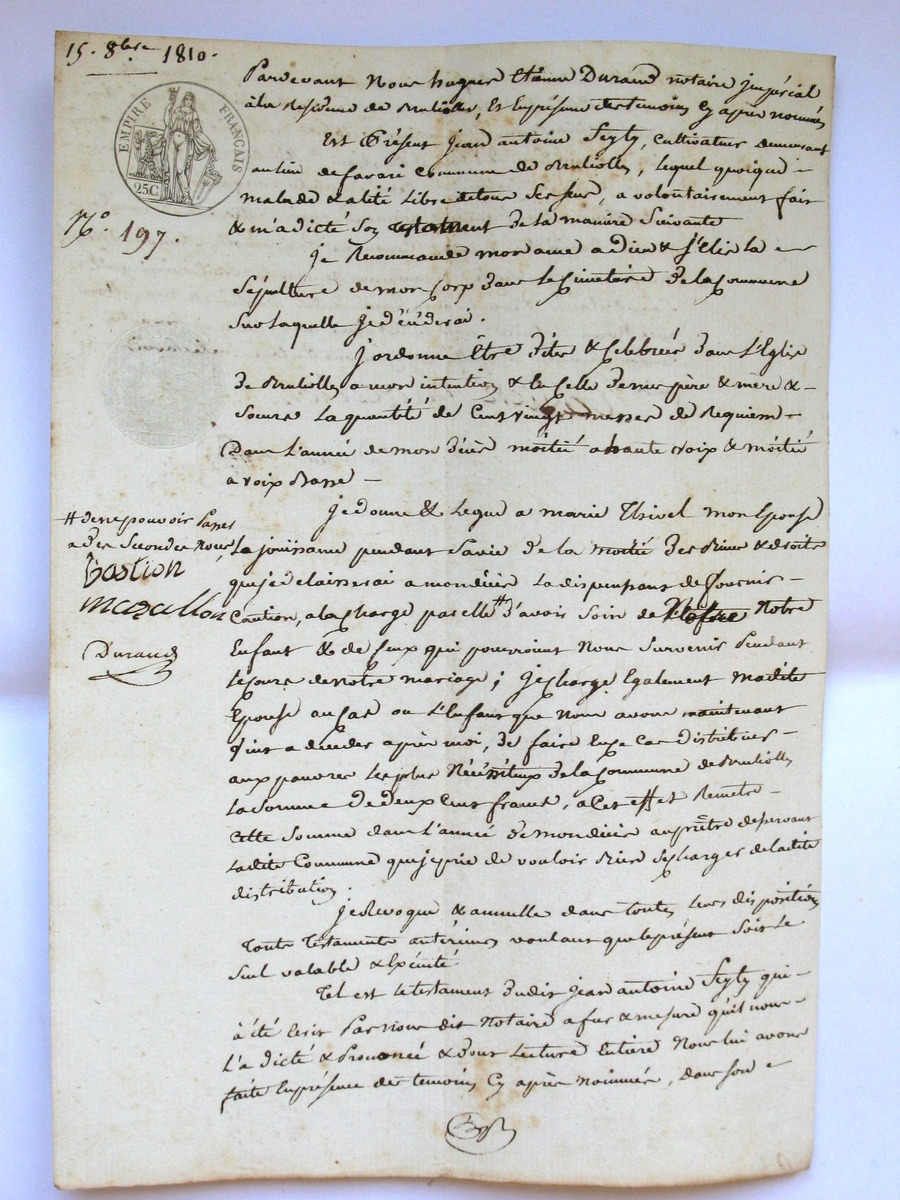 15. 8bre 1810.
EMPIRE FRANÇAIS
25C.
N.º 197.
Pardevant Nous hugues Etienne Durand notaire impérial
à la Residence de Brulioles, Et En présence des temoins Cy après nommés
Est Présent Jean antoine Seyty, Cultivateur demeurant
au lieu de favari Commune de Brulioles, lequel quoique
malade & alité libre de tous ses sens, a volontairement fait
& m'a dicté Son testament de la maniere Suivante
je Recommande mon ame a dieu & j'Elis la
Sépulture de mon Corp dans le Cimetiere de la Commune
Sur laquelle je décéderai.
j'ordonne Être dites & Celebrées dans l'Eglise
de Brulioles a mon intention & En Celle de mes père & mère &
Soeurs la quantité de Cent vingt messes de Requiem
Dans l'année de mon décès moitié a haute voix & moitié
a voix Basse
je donne & legue a marie Thivel mon Epouse
la jouissance pendant Sa vie de la moitié des Biens & droits
que je delaisserai a mon décès la dispensant de fournir
Caution, a la Charge par elle # d'avoir Soin de Notre
Enfant & de Ceux qui pourroient Nous Survenir Pendant
le Cours de notre mariage; je Charge Egalement madite
Epouse au Cas ou l'Enfant que Nous avons maintenant
vint a deceder après moi, de faire En ce Cas distribuer
aux pauvres les plus Nécéssiteux de la Commune de Brulioles
la Somme de deux Cent francs, a Cet effet Remetre
Cette Somme dans l'année de mon décès au prêtre desservant
ladite Commune que je prie de vouloir Bien se Charger de ladite
distribution.
je Revoque & annulle dans toutes leurs dispositions
Touts Testaments antérieurs voulant que le présent Soit le
Seul valable & Exécuté.
Tel est le testament dudit Jean antoine Seyty qui
à été écrit Par Nous dit Notaire a fur & mesure qu'il nous
l'a dicté & Prononcé & dont Lecture Entiere Nous lui avons
faite En présence des temoins Cy après Nommés, dans son
# de ne pouvoir Passer
a des Secondes Noces
Bastion
mazallon
Durand